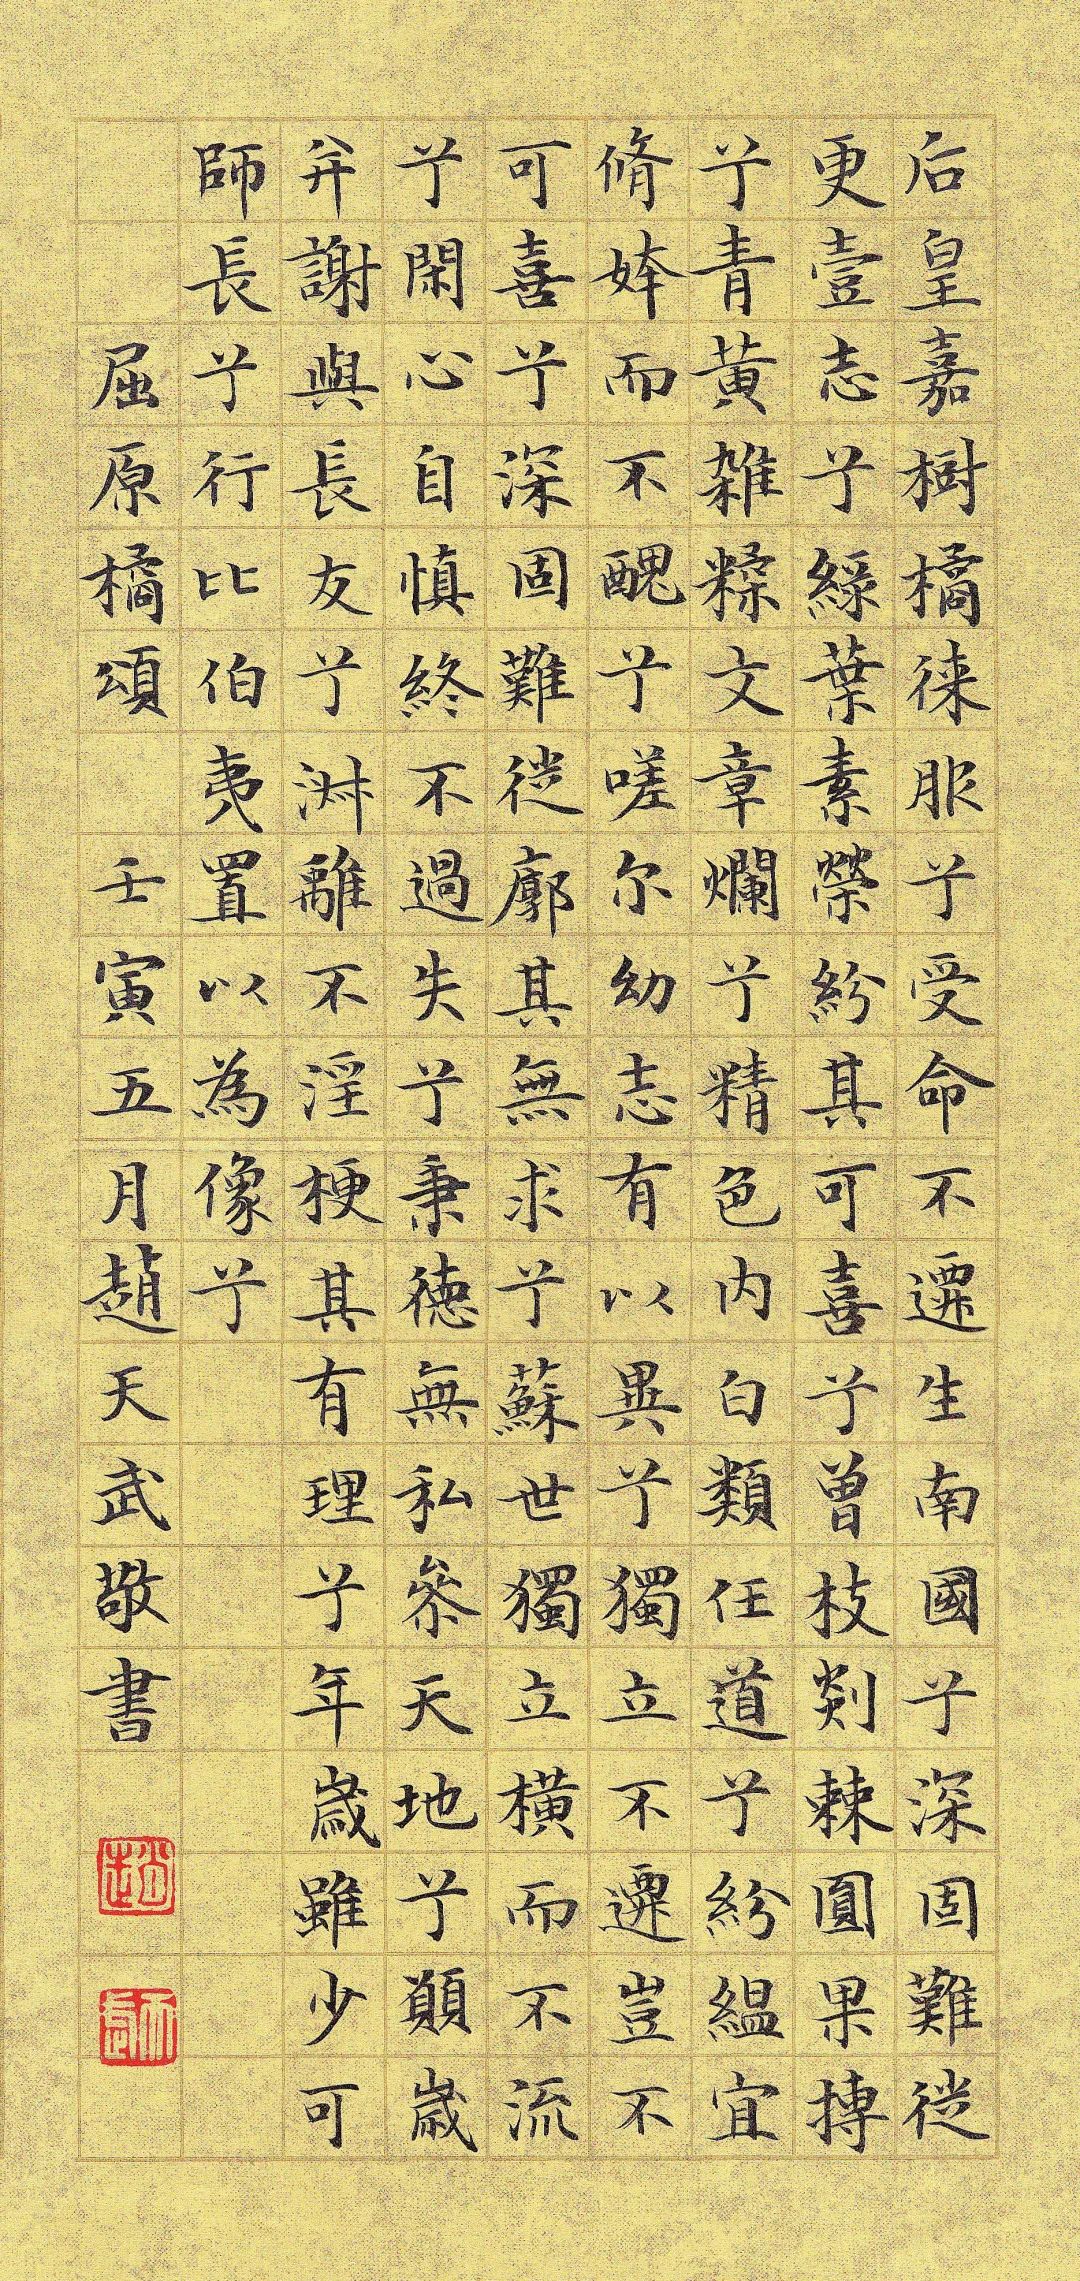 后皇嘉樹橘徠服兮受命不遷生南國兮深固難徙
更壹志兮綠葉素榮紛其可喜兮曾枝剡棘圓果摶
兮青黃雜糅文章爛兮精色内白類任道兮紛緼宜
脩姱而不醜兮嗟尔幼志有以異兮獨立不遷豈不
可喜兮深固難徙廓其無求兮蘇世獨立橫而不流
兮閑心自慎終不過失兮秉德無私參天地兮願歲
并謝與長友兮淑離不淫梗其有理兮年歲雖少可
師長兮行比伯夷置以為像兮
屈原橘頌 壬寅五月趙天武敬書
趙
天武